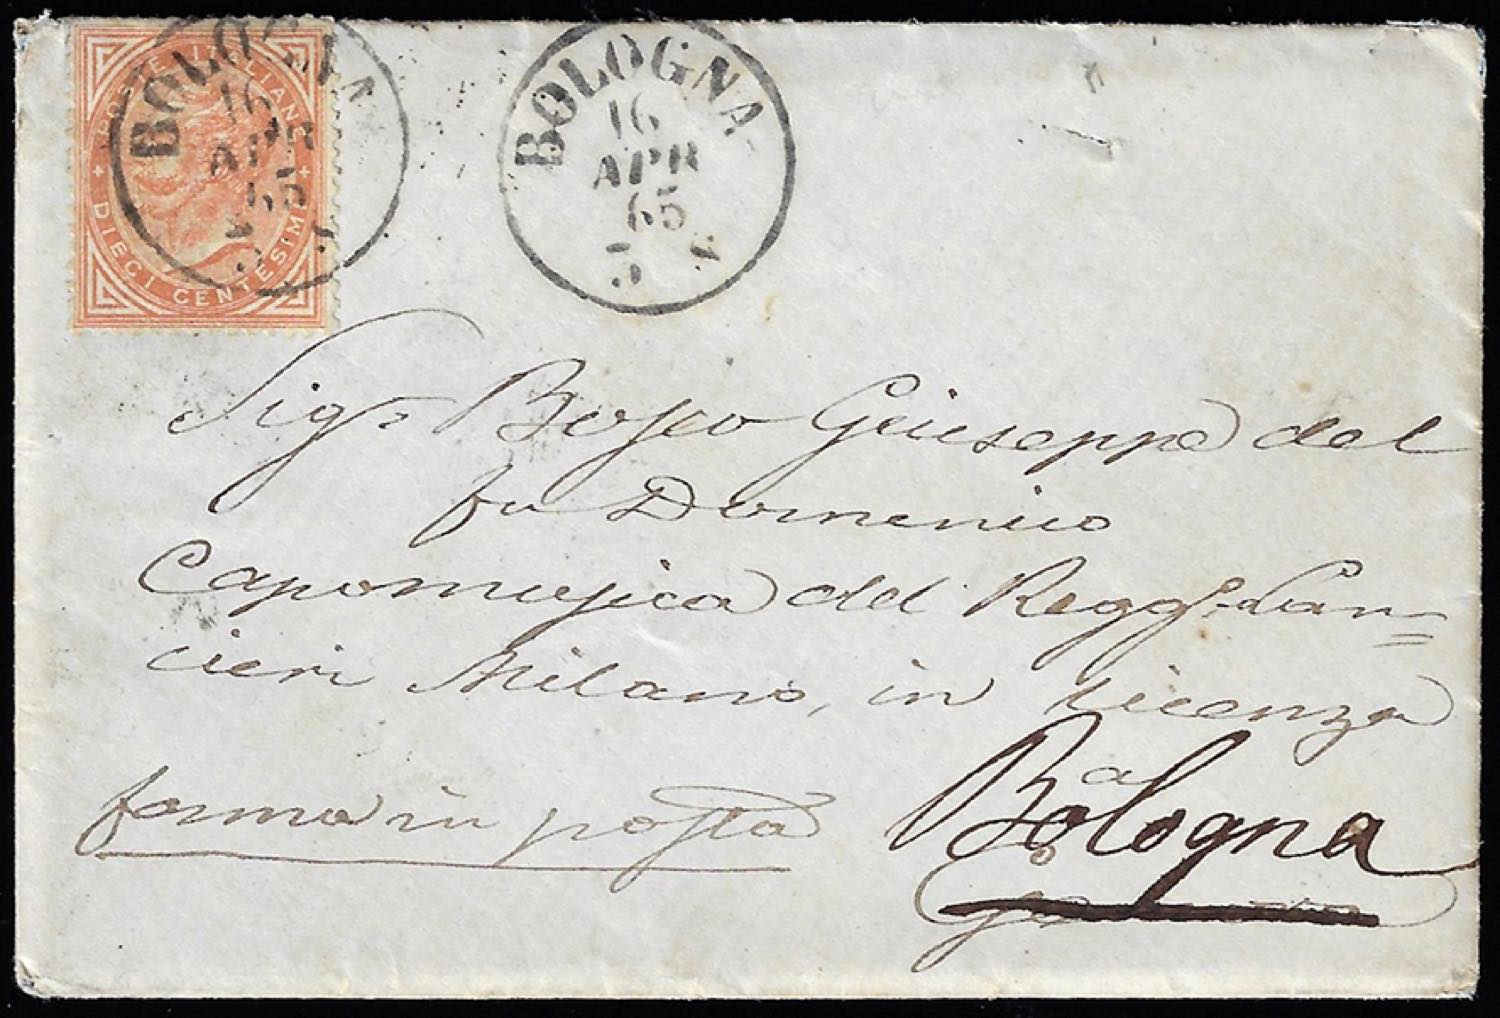 POSTE ITALIANE
DIECI CENTESIMI
BOLOGNA
16
APR
65
5 S
BOLOGNA
16
APR
65
5 S
Sigr Bosco Geiuseppe del
fu Domenico
Capomusica del Reggto Lan=
cieri Milano, in Vicenza
ferma in posta
a
Bologna